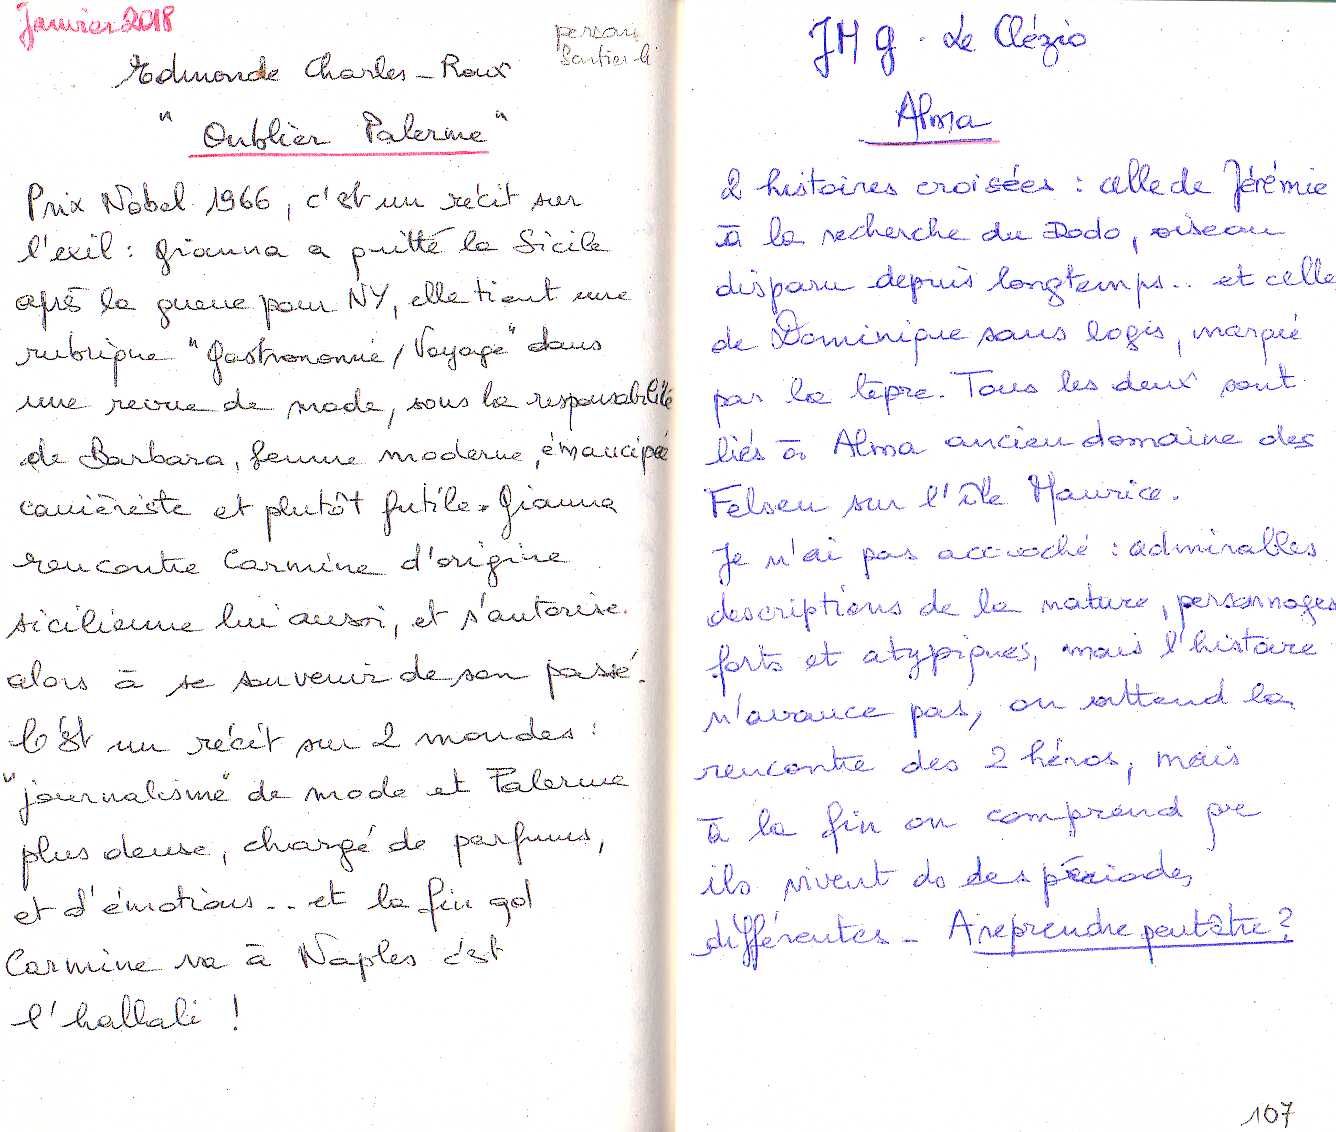 Janvier 2018
Edmonde Charles-Roux
"Oublier Palerme"
Prix Nobel 1966, c'est un récit sur
l'exil : Gianna a quitté la Sicile
après la guerre pour NY, elle tient une
rubrique "Gastronomie/Voyage" dans
une revue de mode, sous la responsabilité
de Barbara, femme moderne, émancipée
carrièriste et plutôt futile. Gianna
rencontre Carmine d'origine
sicilienne lui aussi, et s'autorise
alors à se souvenir de son passé.
C'est un récit sur 2 mondes :
"journalisme" de mode et Palerme
plus dense, chargé de parfums,
et d'émotions.. et la fin qd
Carmine va à Naples c'est
l'hallali !
JMG. Le Clézio
Alma
2 histoires croisées : celle de Jérémie
à la recherche du Dodo, oiseau
disparu depuis longtemps.. et celle
de Dominique sans logis, marqué
par la lèpre. Tous les deux sont
liés à Alma ancien domaine des
Felsen sur l'île Maurice.
Je n'ai pas accroché : admirables
descriptions de la nature, personnages
forts et atypiques, mais l'histoire
n'avance pas, on attend la
rencontre des 2 héros, mais
à la fin on comprend que
ils vivent ds des périodes
différentes - A reprendre peut être ?
107